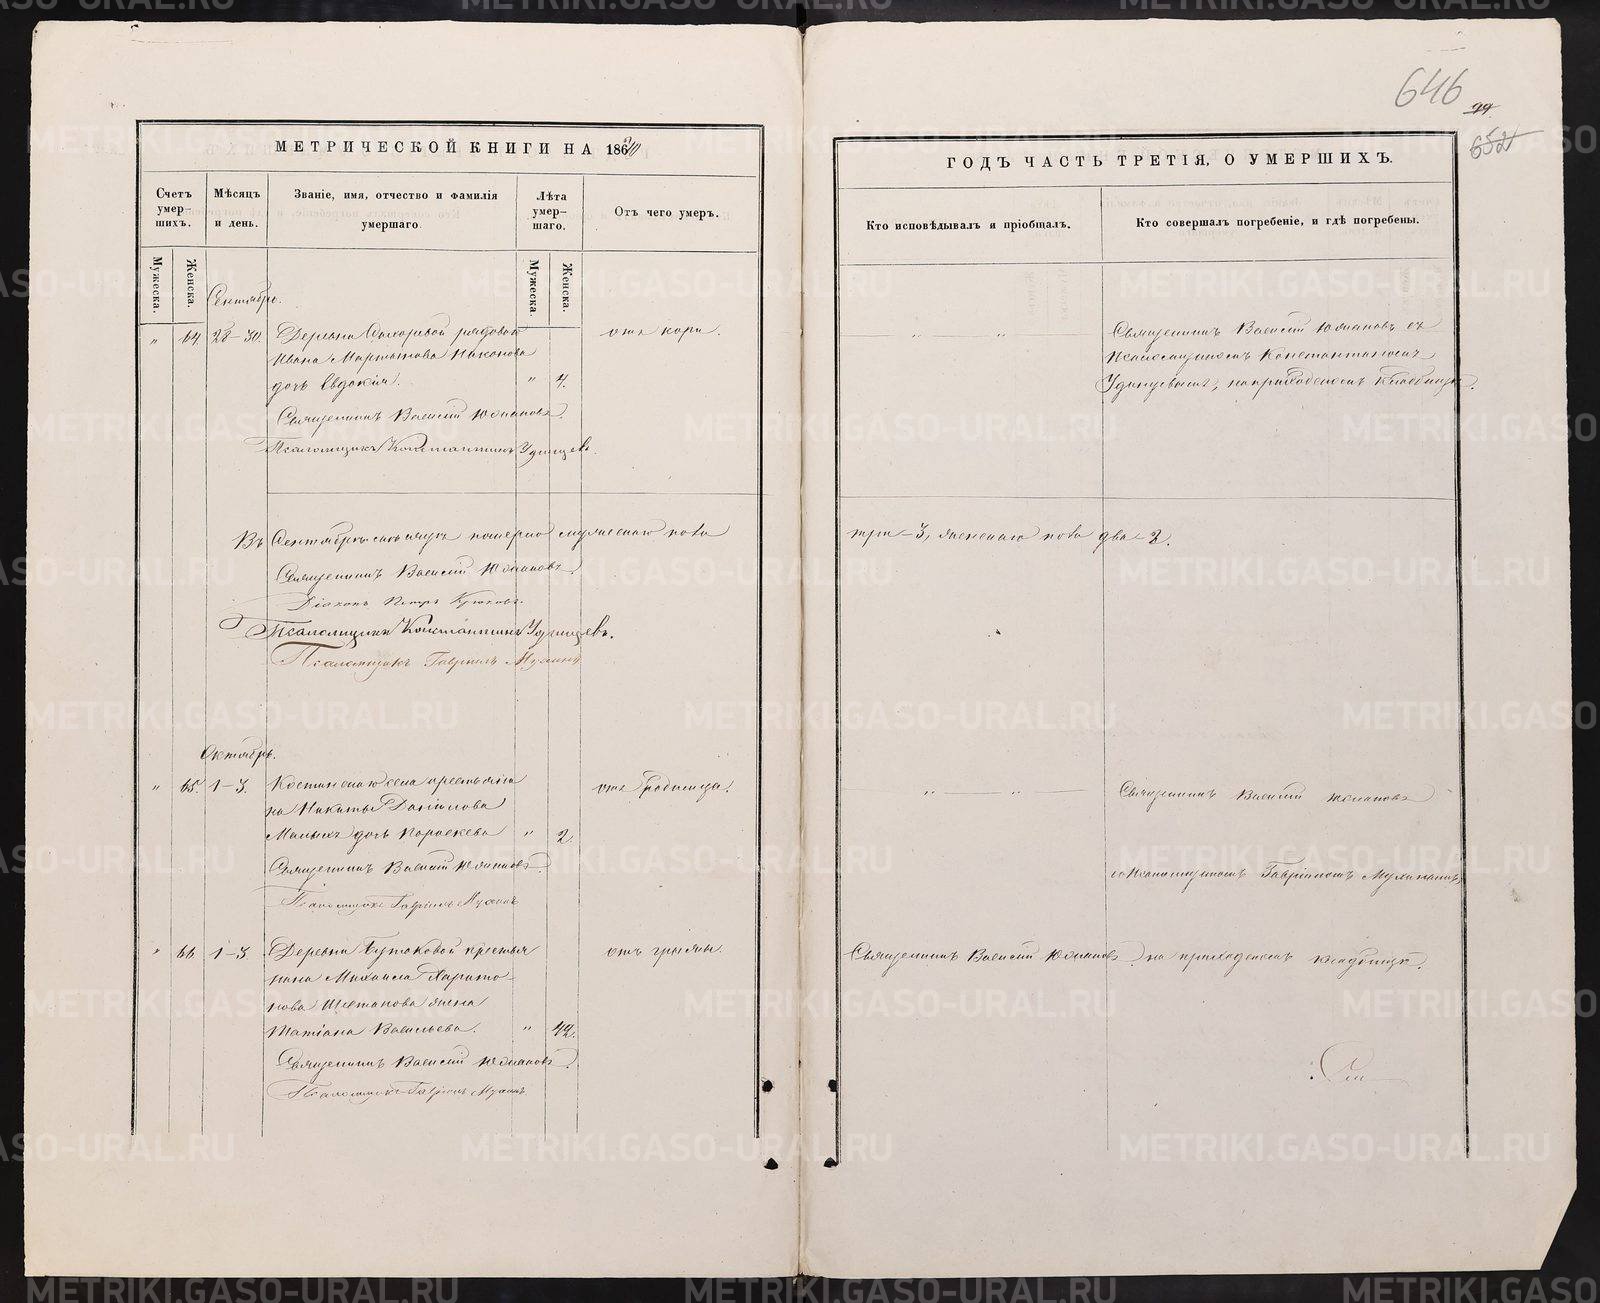 646
99
652
МЕТРИЧЕСКОЙ КНИГИ НА 1870
ГОДЪ ЧАСТЬ ТРЕТІЯ, О УМЕРШИХЪ.
Счетъ умер-шихъ.
Мѣсяцъ и день.
Званіе, имя, отчество и фамилія умершаго.
Лѣта умер-шаго.
Отъ чего умеръ.
Кто исповѣдывалъ и пріобщалъ.
Кто совершалъ погребеніе, и гдѣ погребены.
Мужеска.
Женска.
Мужеска.
Женска.
Сентябрь.
" 64. 28-30. Деревни рядоваго отъ кори.
Ивана Мартынова Никонова
дочь Евдокія. " 4.
Священникъ Василій Юшановъ.
Псаломщикъ Константинъ Удинцевъ.
Священникъ Василій Юшановъ съ
псаломщикомъ Константиномъ
Удинцевымъ, на приходскомъ кладбищѣ.
Въ Сентябрѣ мѣсяцѣ померло мужескаго пола
три-3, женскаго пола два-2.
Священникъ Василій Юшановъ.
Діаконъ Петръ Крюковъ.
Псаломщикъ Константинъ Удинцевъ.
Псаломщикъ Гавріилъ
Октябрь.
" 65. 1-3. села крестьяни-
на Никиты Даніилова
Малыхъ дочь Параскева " 2.
отъ родимца.
Священникъ Василій Юшановъ.
Псаломщикъ Гавріилъ
Священникъ Василій Юшановъ
съ псаломщикомъ Гавріиломъ
" 66. 1-3. Деревни Бутаковой крестья-
нина Михаила Харито-
нова жена
Татіана Васильева. " 42.
отъ грыжи.
Священникъ Василій Юшановъ
на приходскомъ кладбищѣ.
Священникъ Василій Юшановъ.
Псаломщикъ Гавріилъ
METRIKI.GASO-URAL.RU